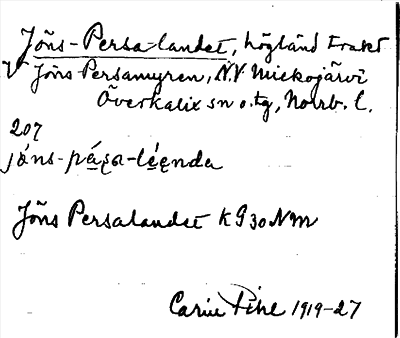 Jöns-Persa-landet, högländ trakt
V Jöns-Persamyren, N.V. Miekojärvi
Överkalix sn o. tg, Norrb. l.
207
jǿns-pá̱ʂa-lé̱ęnda
Jöns Persalandet K G 30 N m
Carin Pihl 1919-27